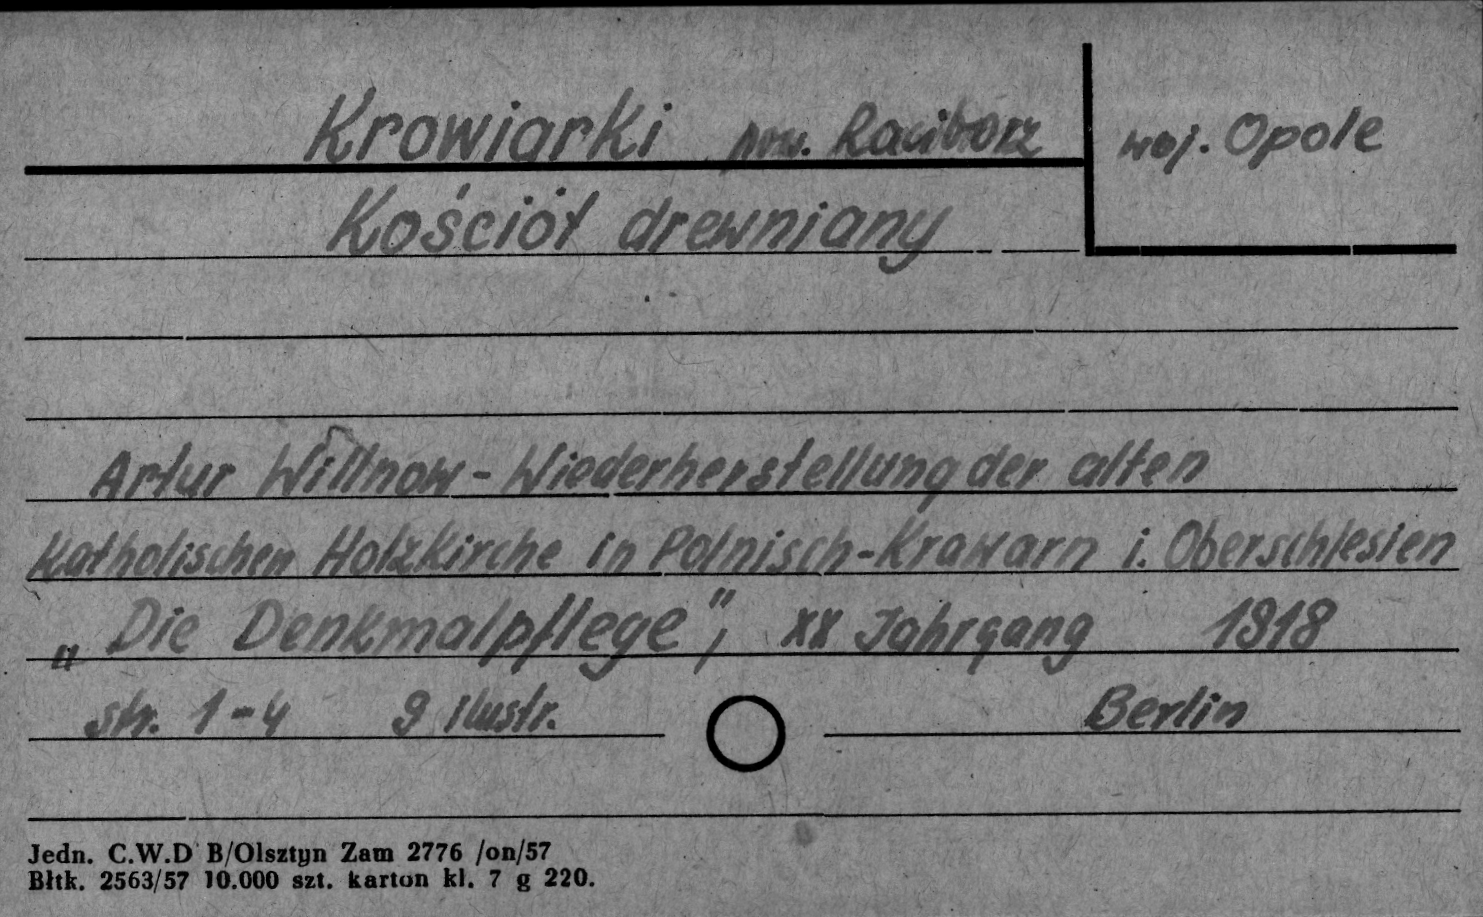 Krowiarki pow. Racibórz woj. Opole
Kościół drewniany
Artur Willnow - Wiederherstellung der alten
Katholischen Holzkirche in Polnisch-Krawarn i. Oberschlesien
„Die Denkmalpflege", XX Jahrgang 1918
str. 1-4 9 ilustr. Berlin
Jedn. C.W.D B/Olsztyn Zam 2776 /on/57
Błtk. 2563/57 10.000 szt. karton kl. 7 g 220.